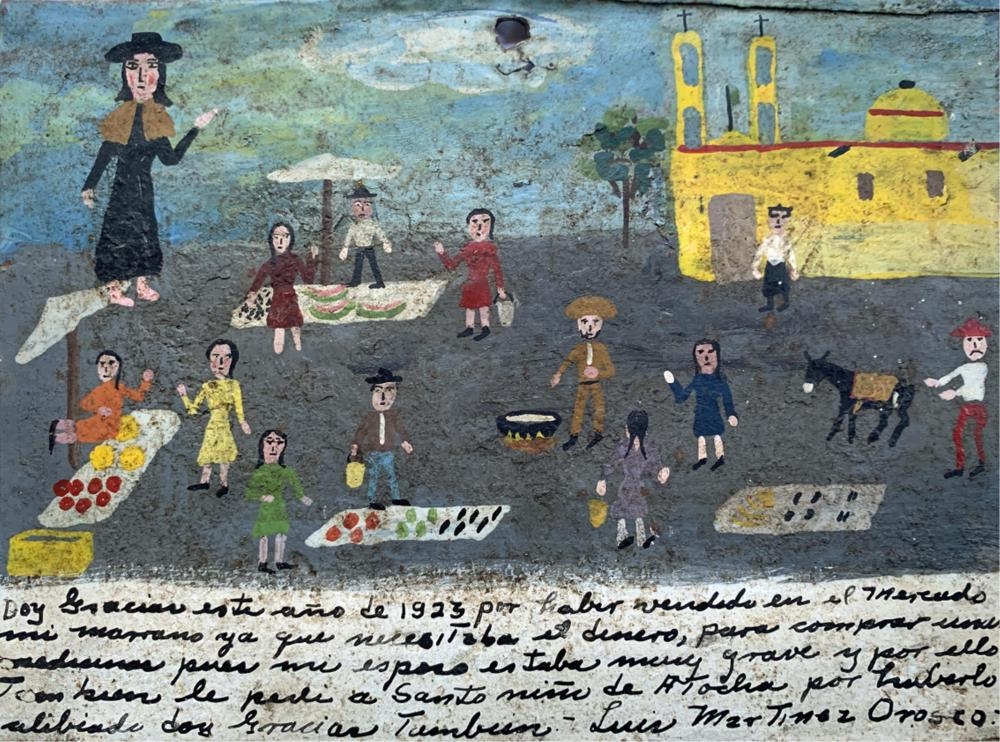 Doy Gracias este año de 1923 por haber vendido en el Mercado
mi marrano ya que necesitaba el dinero, para comprar unas
medicinas pues mi esposo estaba muy grave y por ello
Tambien le pedi a Santo niño de ATocha por haberlo
alibiado doy Gracias Tambien - Luis MarTinez Orosco.